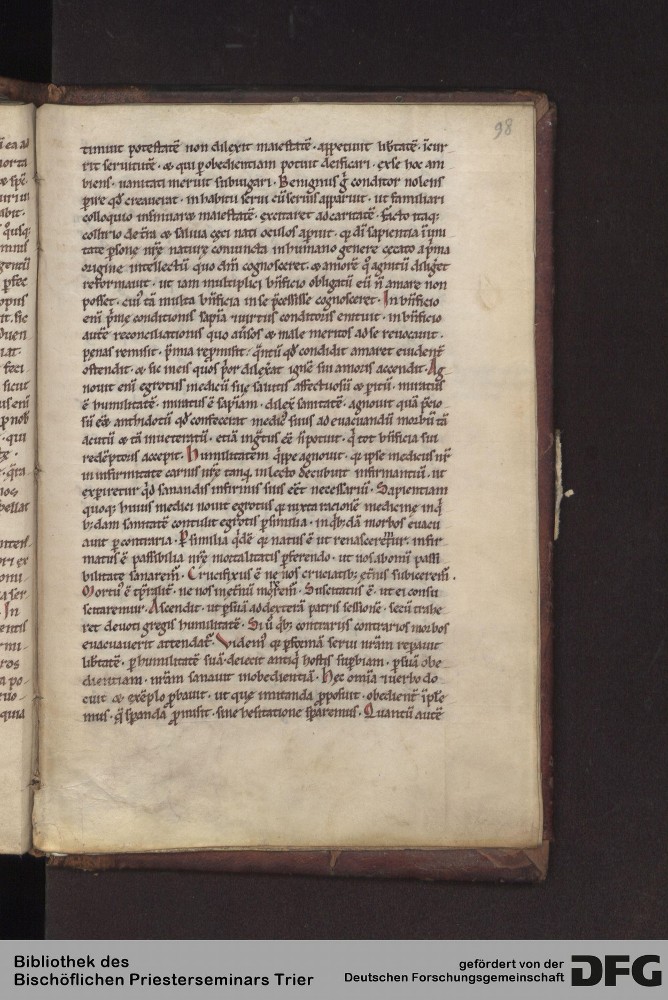 98
timuit potestatē non dilexit maiestatē · appetiuit libtatē · īcur
rit seruitutē · & qui p obedientiam potuit deificari · ex se hoc am
biens · uanitati meruit subiugari · Benignus g̃ conditor nolens
pire qd̄ creauerat · in habitu serui cū seruis apparuit · ut familiari
colloquio insinuare maiestatē · excitaret ad caritatē · facto itaq;
collirio de tr̄a & saliua ceci nati oculos apuit · q̄ dī sapientia ī uni
tate psone nr̄e nature coniuncta in humano genere cecato a pma
origine intellectū quo dm̄ cognosceret · & amorē q̄ agnitū diligeret
reformauit · ut iam multiplici bn̄ficio obligatū eū n̄ amare non
posset · cui tā multa bn̄ficia in se pcessisse cognosceret · In bn̄ficio
eni p̄me conditionis sapīa & uirtus conditoris enituit · in bn̄ficio
autē reconciliationis quo auersos & male meritos ad se reuocauit ·
penas remisit · p̄mia repromisit · q̄ntū qd̄ condidit amaret euident̄
ostendit · & sic in eis quos p̄or dilexerat ignē sui amoris accendit · Ag
nouit eni egrotus medicū sue salutis affectuosū & peritū · miratus
ē humilitatē · miratus ē sapīam · dilex̄ sanitatē · agnouit quā p̄cio
sū eē antidotū qd̄ confecerat medic̄ suus ad euacuandū morbū tā
acutū & tā inueteratū · etiā ingratus eē n̄ potuit · q̄ tot bn̄ficia sui
redēptoris accepit · Humilitatem q̄ppe agnouit · q̄ ipse medicus nr̄
in infirmitate carnis nr̄e tanq̄ in lecto decubuit infirmantiū · ut
experiretur qd̄ sanandis infirmis suis eēt necessariū · Sapientiam
quoq; huius medici nouit egrotus q̄ iuxta racionē medicine in q̄
b; dam sanitatē contulit egrotis p similia · in q̄b; dā morbos euacu
auit p contraria · P similia q̄dē q̄ natus ē ut renasceremur · infir
matus ē passibilia nr̄e mortalitatis pferendo · ut nos ab omi passi
bilitate sanarem̄ · Crucifixus ē ne nos cruciatib; et̄nis subicerem̄ ·
Mortu' ē tp̄ralit̄ · ne nos inet̄nū morerem̄ · Suscitatus ē · ut ei consu
scitaremur · Ascendit · ut p suā ad dexterā patris sessionē · secū trahe
ret deuoti gregis humilitatē · Si ū q̄b; contrariis contrarios morbos
euacuauerit attendat̄ · Videm' q̄ p formā serui nr̄am repauit
libtatē · p humilitatē suā deiecit antiq̄ hostis supbiam · p suā obe
dientiam · nr̄am sanauit inobedientiā · Hec omīa & uerbo do
cuit & exēplo pbauit · ut que imitanda pposuit · obedient̄ īple
mus · q̄ speranda p̄misit · sine hesitatione speremus · Quantū autē
Bibliothek des
Bischöflichen Priesterseminars Trier
gefördert von der
Deutschen Forschungsgemeinschaft
DFG